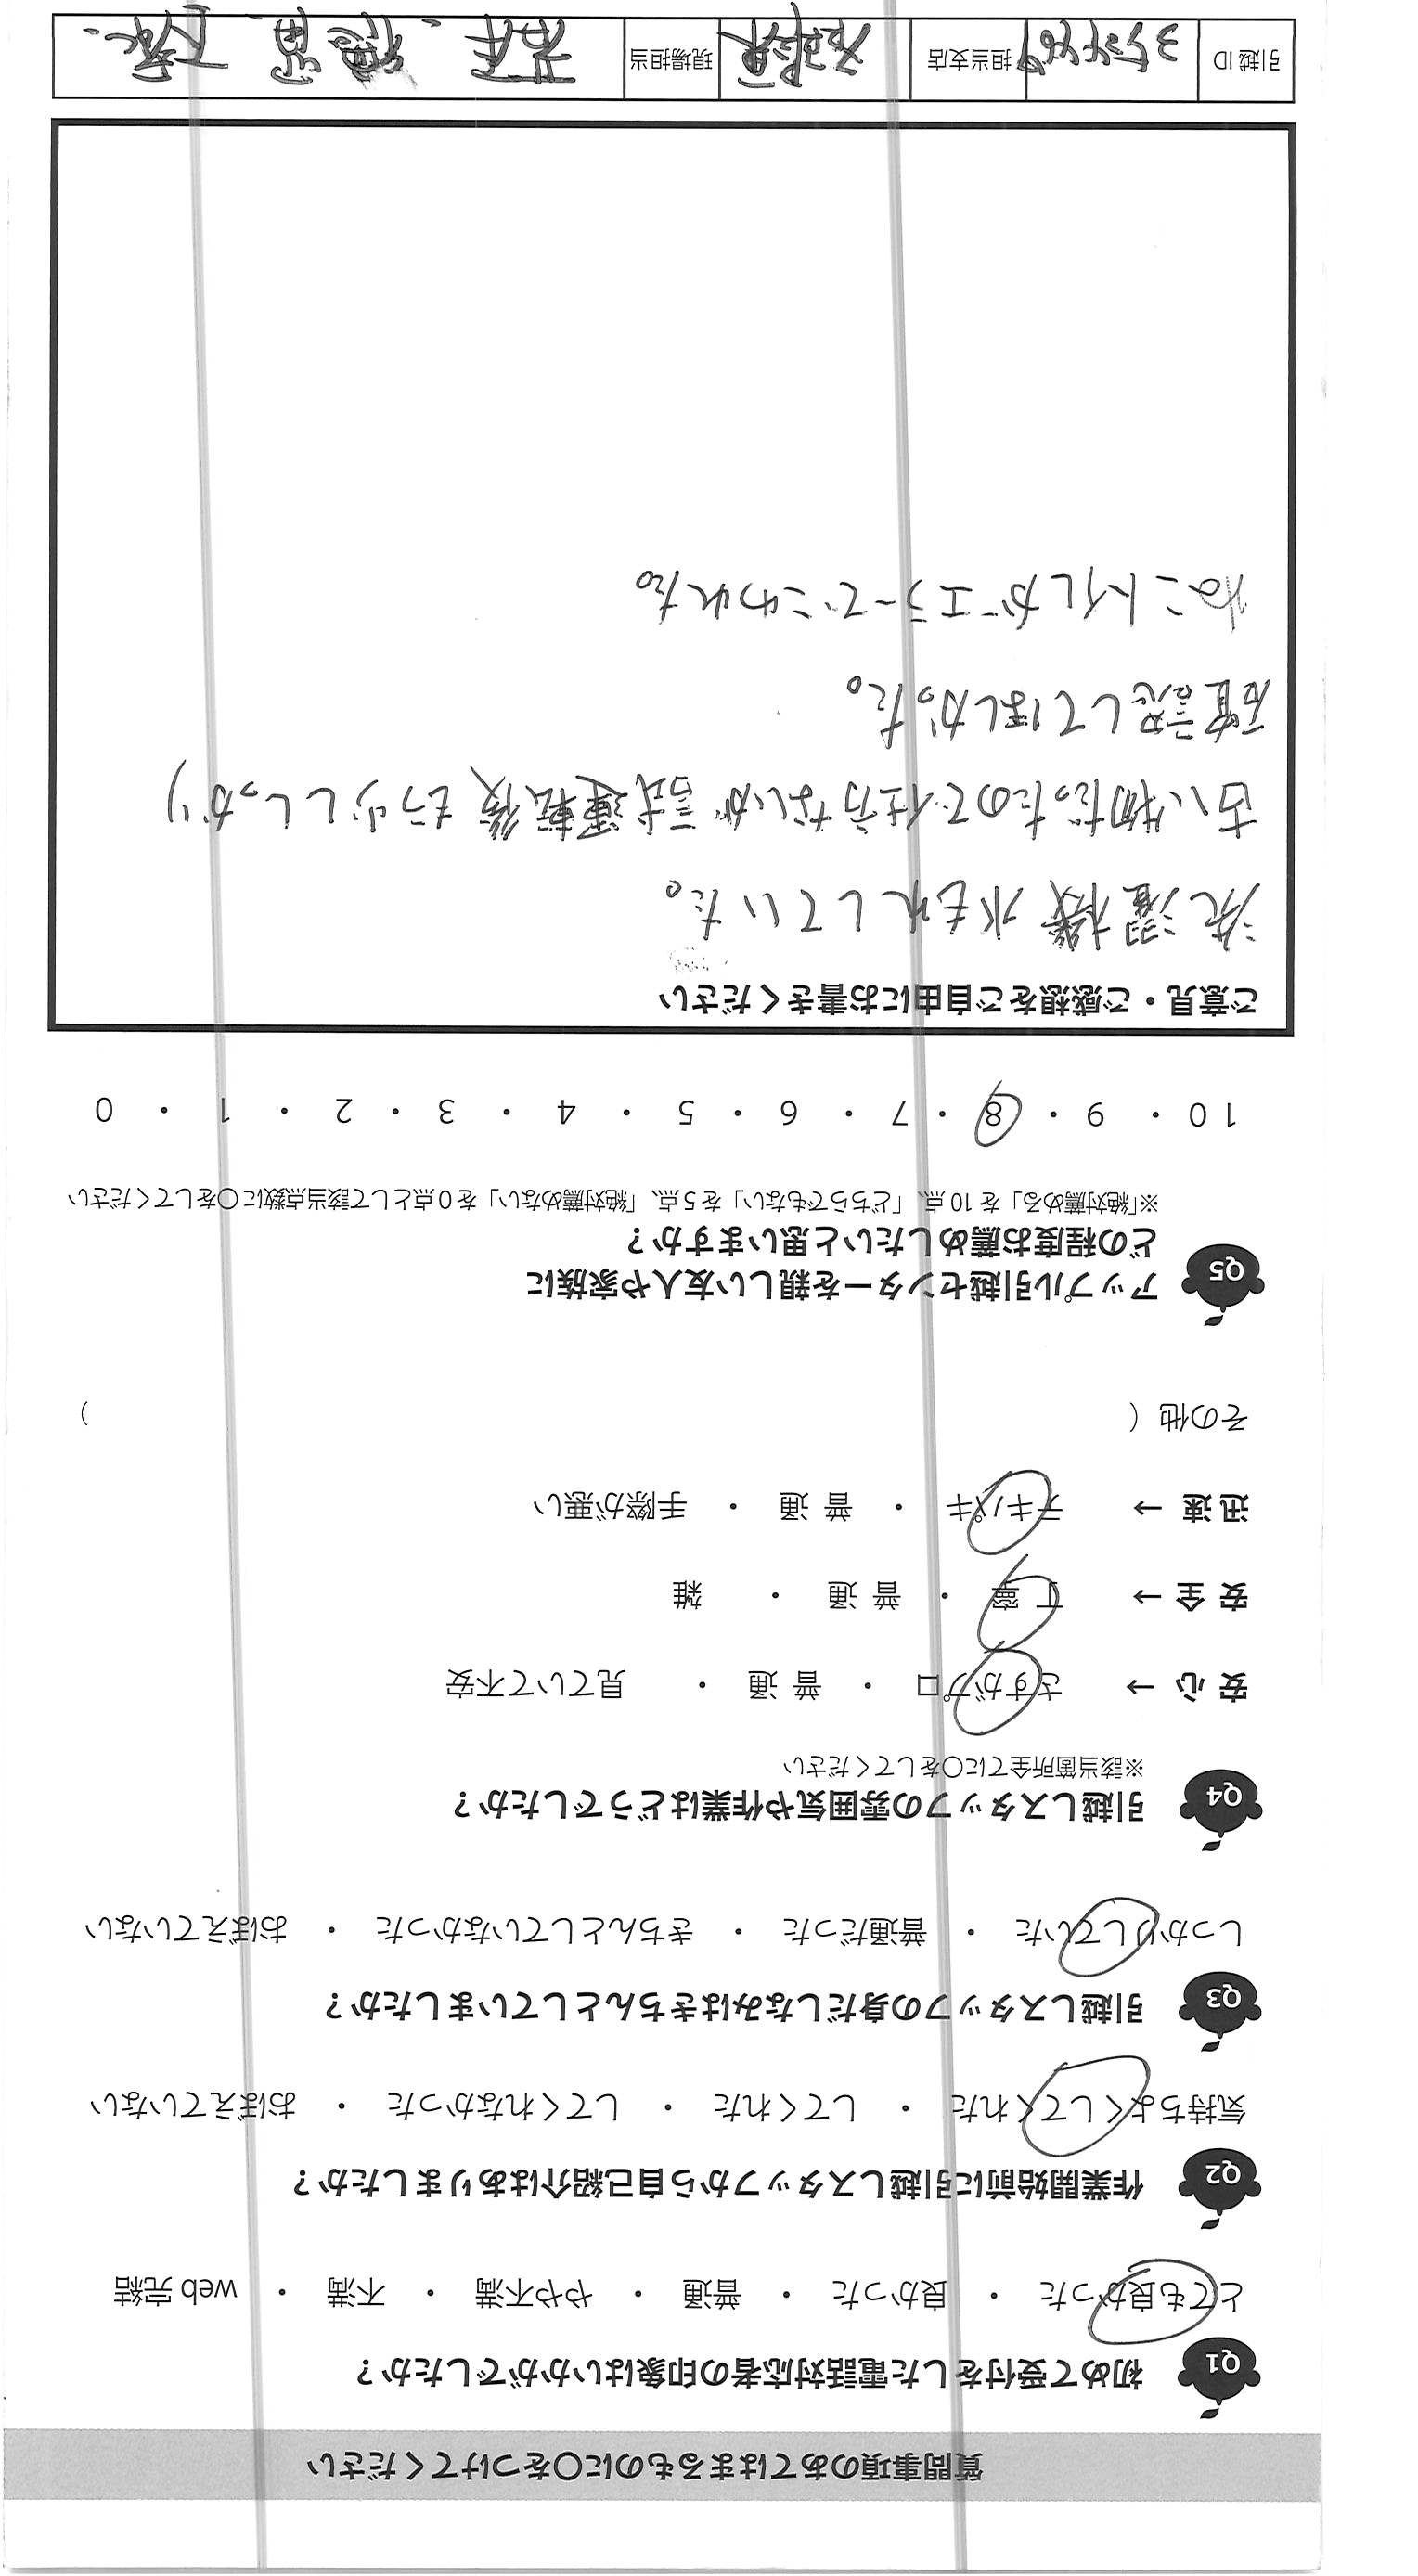 質問事項のあてはまるものに〇をつけてください
Q1 初めて受付をした電話対応者の印象はいかがでしたか？
とても良かった ・ 良かった ・ 普通 ・ やや不満 ・ 不満 ・ web 完結
Q2 作業開始前に引越しスタッフから自己紹介はありましたか？
気持ちよくしてくれた ・ してくれた ・ してくれなかった ・ おぼえていない
Q3 引越しスタッフの身だしなみはきちんとしていましたか？
しっかりしていた ・ 普通だった ・ きちんとしていなかった ・ おぼえていない
Q4 引越しスタッフの雰囲気や作業はどうでしたか？
※該当箇所全てに〇をしてください
安 心 → さすがプロ ・ 普 通 ・ 見ていて不安
安 全 → 丁 寧 ・ 普 通 ・ 雑
迅 速 → テキパキ ・ 普 通 ・ 手際が悪い
その他（ ）
Q5 アップル引越センターを親しい友人や家族に
どの程度お薦めしたいと思いますか？
※「絶対薦める」を 10 点、「どちらでもない」を 5 点、「絶対薦めない」を 0 点として該当点数に〇をしてください
10 ・ 9 ・ 8 ・ 7 ・ 6 ・ 5 ・ 4 ・ 3 ・ 2 ・ 1 ・ 0
ご意見・ご感想をご自由にお書きください
洗濯機 水もれしていた。
古い物だったので仕方ないが 試運転後 もう少ししっかり
確認してほしかった。
ねこトイレがエラーでこわれた。
引越 ID 担当支店 現場担当